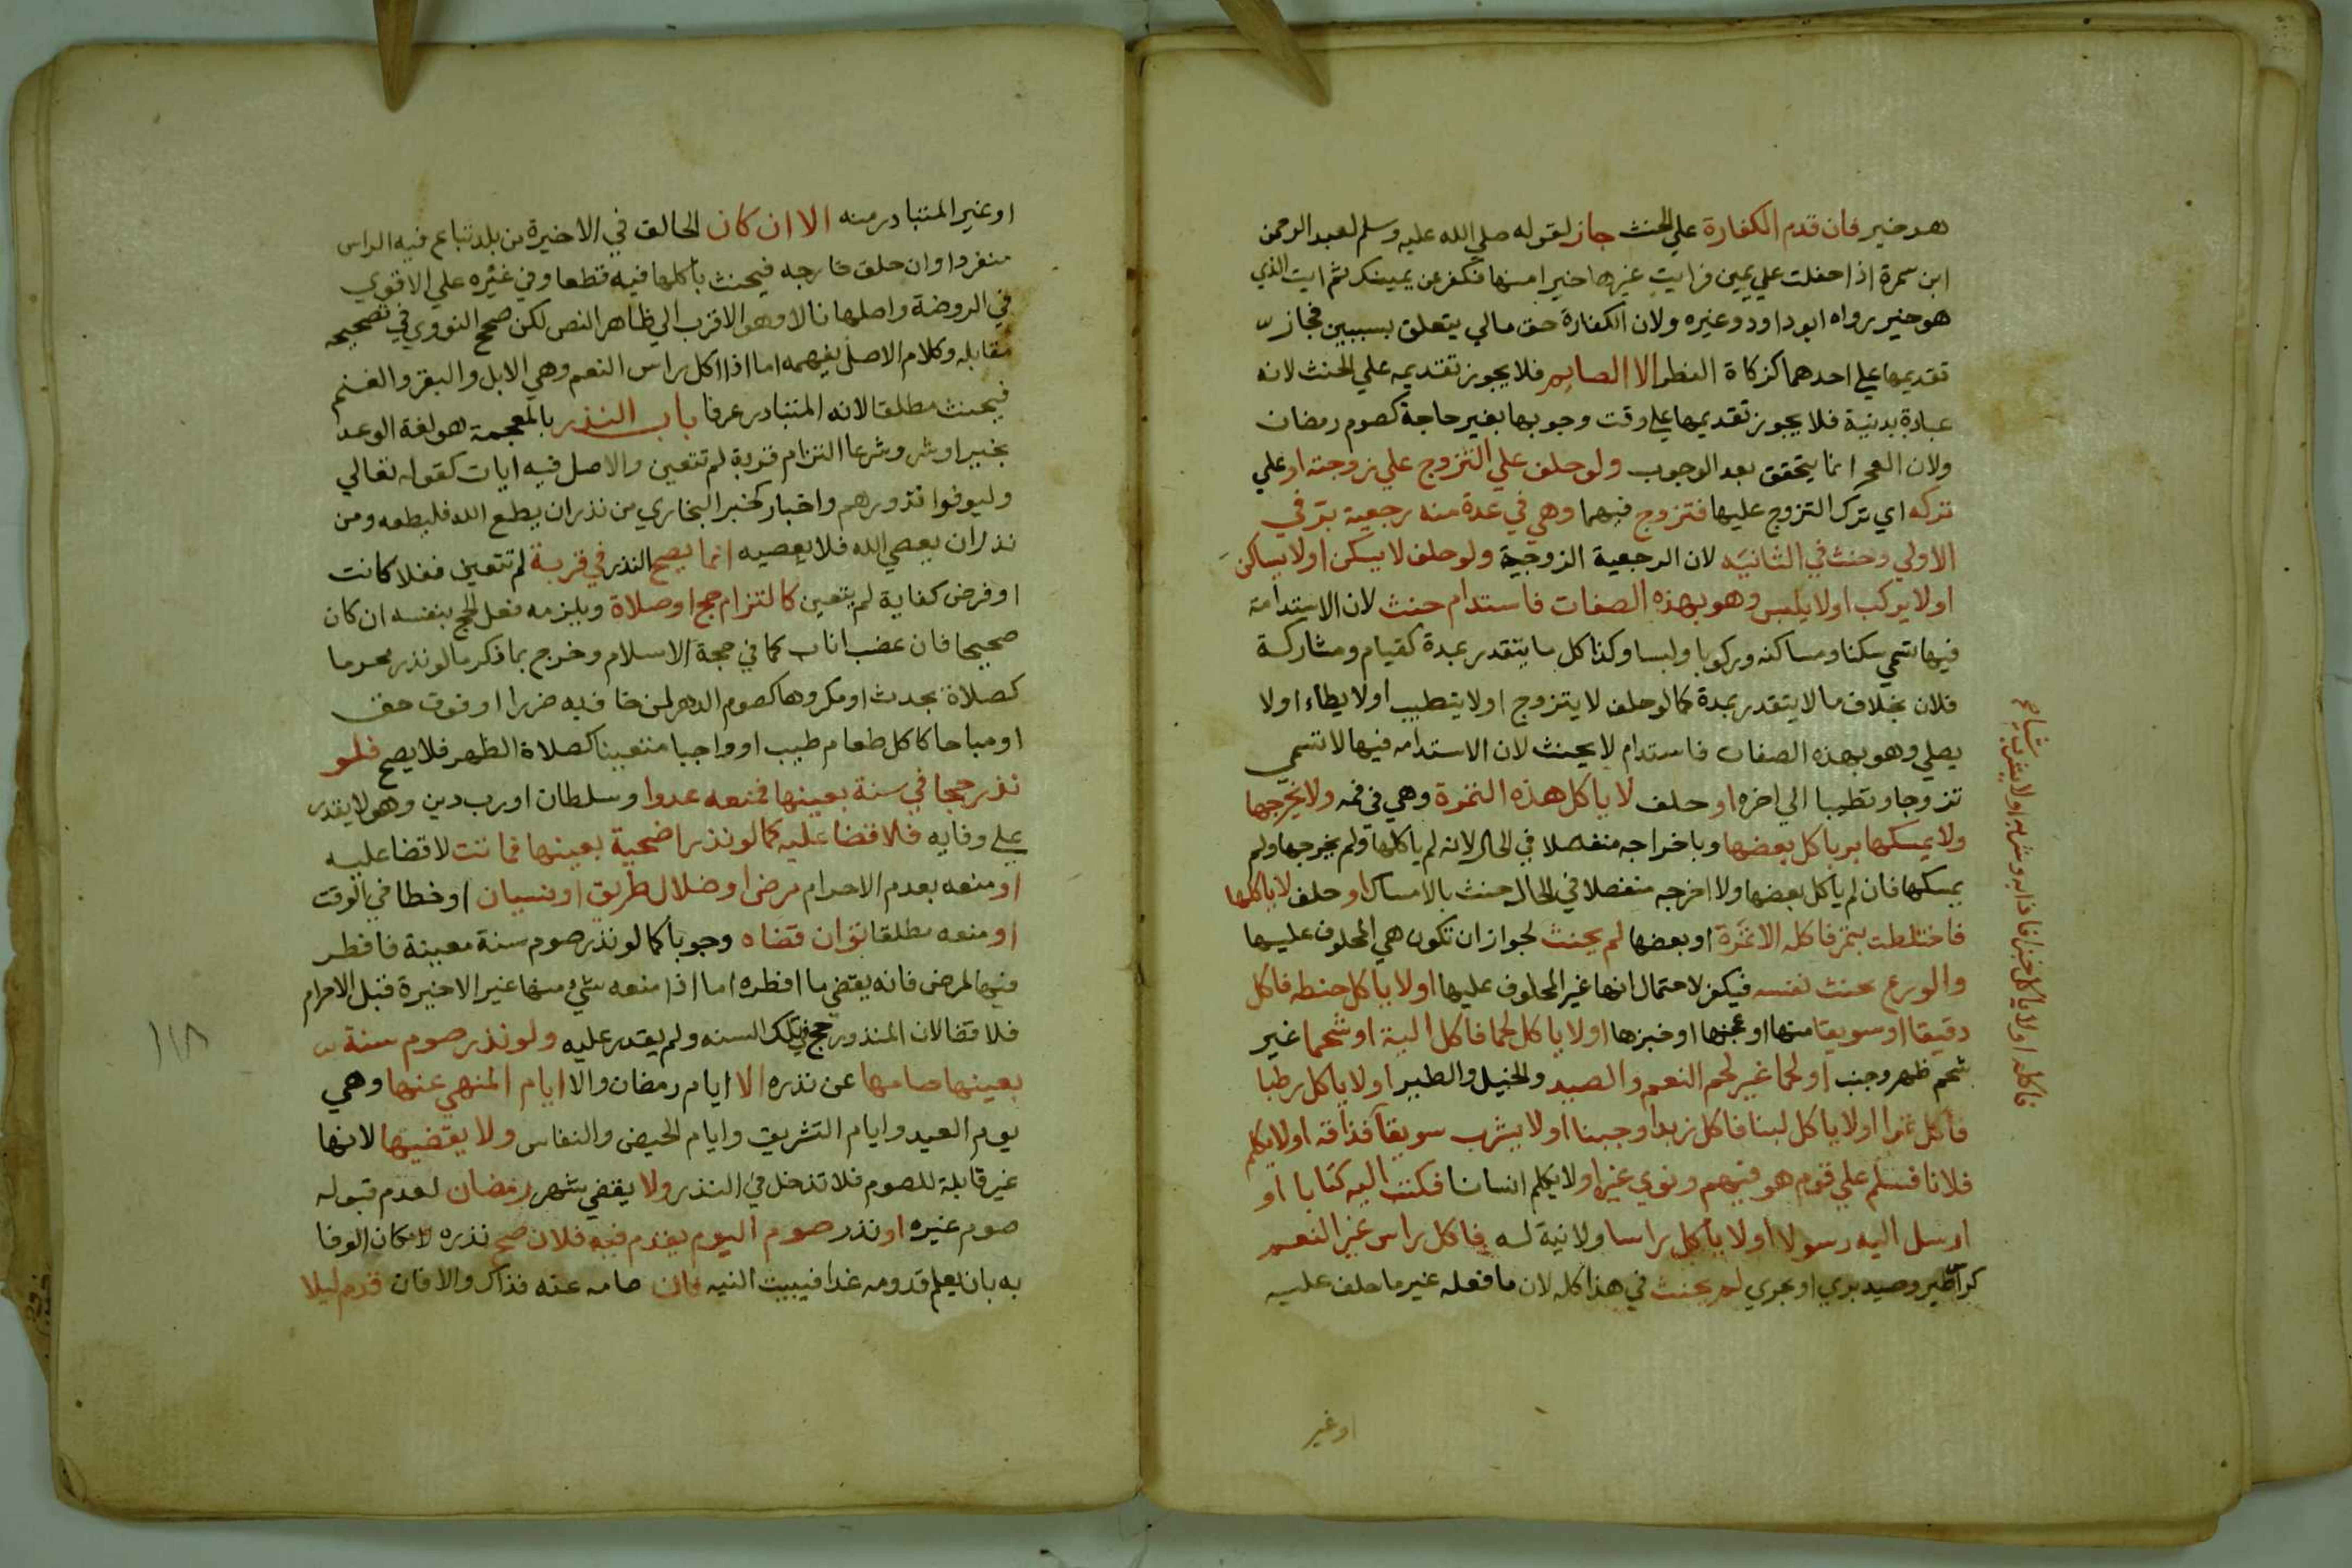 هو خير فان قدم الكفارة علي الحنث جاز لقوله صلي الله عليه وسلم لعبد الرحمن
ابن سمرة اذا حفلت علي يمين فرايت غيرها خيرا منها فكفر عن يمينك ثم ايت الذي
هو خير رواه ابو داود وغيره ولان الكفارة حق مالي يتعلق بسببين فجاز
تقديمها علي احدهما كزكاة الفطر الا الصايم فلا يجوز تقديمه علي الحنث لانه
عبادة بدنية فلا يجوز تقديمها علي وقت وجوبها بغير حاجة كصوم رمضان
ولان العجز انما يتحقق بعد الوجوب ولو حلف علي التزوج علي زوجته او علي
تركه اي ترك التزوج عليها فتزوج فيهما وهي في عدة منه رجعية بر في
الاولي وحنث في الثانيه لان الرجعية الزوجية ولو حلف لا يسكن او لا يساكن
او لا يركب او لا يلبس وهو بهذه الصفات فاستدام حنث لان الاستدامة
فيها تسمي سكنا ومساكنه وركوبا ولبسا وكذا كل ما يتقدر بمدة كقيام ومشاركة
فلان بخلاف ما لا يتقدر بمدة كما لو حلف لا يتزوج او لا يتطيب او لا يطاء او لا
يصلي وهو بهذه الصفات فاستدام لا يحنث لان الاستدامه فيها لا تسمي
تزوجا وتطيبا الي اخره او حلف لا ياكل هذه التمرة وهي في فمه ولا يخرجها
ولا يمسكها بر باكل بعضها وباخراجه منفصلا في الحال لانه لم ياكلها ولم يخرجها ولم
يمسكها فان لم ياكل بعضها ولا اخرجه منفصلا في الحال حنث بالامساك او حلف لا ياكلها
فاختلطت بتمر فاكله الا تمرة او بعضها لم يحنث لجواز ان تكون هي المحلوف عليها
والورع يحنث نفسه فيكفر لاحتمال انها غير المحلوف عليها او لا ياكل حنطه فاكل
دقيقا او سويقا منها او عجنها او خبزها او لا ياكل لحما فاكل الية او شحما غير
شحم ظهر وجنب او لحما غير لحم النعم والصيد والخيل والطير او لا ياكل رطبا
فاكل تمرا او لا ياكل لبنا فاكل زبدا وجبنا او لا يشرب سويقا فذاقه او لا يكلم
فلانا فسلم علي قوم هو فيهم ونوي غيره او لا يكلم انسانا فكتب اليه كتابا او
ارسل اليه رسولا او لا ياكل راسا ولا نية له فاكل راس غير النعم
كراس طير وصيد بري او بحري لم يحنث في هذا كله لان ما فعله غير ما حلف عليه
اوغير
او غير المتبادر منه الا ان كان الحالف في الاخيرة من بلد تباع فيه الراس
منفردا وان حلف خارجه فيحنث باكلها فيه قطعا وفي غيره علي الاقوي
في الروضة واصلها نالا وهو الاقرب الي ظاهر النص لكن صحح النووي في تصحيحه
مقابله وكلام الاصل يفهمه اما اذا اكل راس النعم وهي الابل والبقر والغنم
فيحنث مطلقا لانه المتبادر عرفا باب النذر بالمعجمة هو لغة الوعد
بخير او شر وشرعا التزام قربة لم تتعين والاصل فيه ايات كقوله تعالي
وليوفوا نذورهم واخبار كخبر البخاري من نذر ان يطع الله فليطعه ومن
نذر ان يعصي الله فلا يعصيه انما يصح النذر في قربة لم تتعين نفلا كانت
او فرض كفاية لم يتعين كالتزام حج او صلاة ويلزمه فعل الحج بنفسه ان كان
صحيحا فان عضب اناب كما في حجة الاسلام وخرج بما ذكر ما لو نذر محرما
كصلاة بحدث او مكروها كصوم الدهر لمن خاف به ضررا او فوت حق
او مباحا كاكل طعام طيب او واجبا متعينا كصلاة الظهر فلا يصح فلو
نذر حجا في سنة بعينها فمنعه عدو او سلطان او رب دين وهو لا يقدر
علي وفايه فلا قضا عليه كما لو نذر اضحية بعينها فماتت لا قضا عليه
او منعه بعد الاحرام مرض او ضلال طريق او نسيان او خطا في الوقت
او منعه مطلقا توان قضاه وجوبا كما لو نذر صوم سنة معينة فافطر
فيها لمرض فانه يقضي ما افطره اما اذا منعه شيء منها غير الاخيرة قبل الاحرام
فلا قضا لان المنذور حج في تلك السنه ولم يقدر عليه ولو نذر صوم سنة
بعينها صامها عن نذره الا ايام رمضان والا ايام المنهي عنها وهي
يوم العيد وايام التشريق وايام الحيض والنفاس ولا يقضيها لانها
غير قابلة للصوم فلا تدخل في النذر ولا يقضي شهر رمضان لعدم قبوله
صوم غيره او نذر صوم اليوم يقدم فيه فلان صح نذره لامكان الوفا
به بان يعلم قدومه غدا فيبيت النيه فان صامه عنه فذاك والا فان قدم ليلا
١١٨